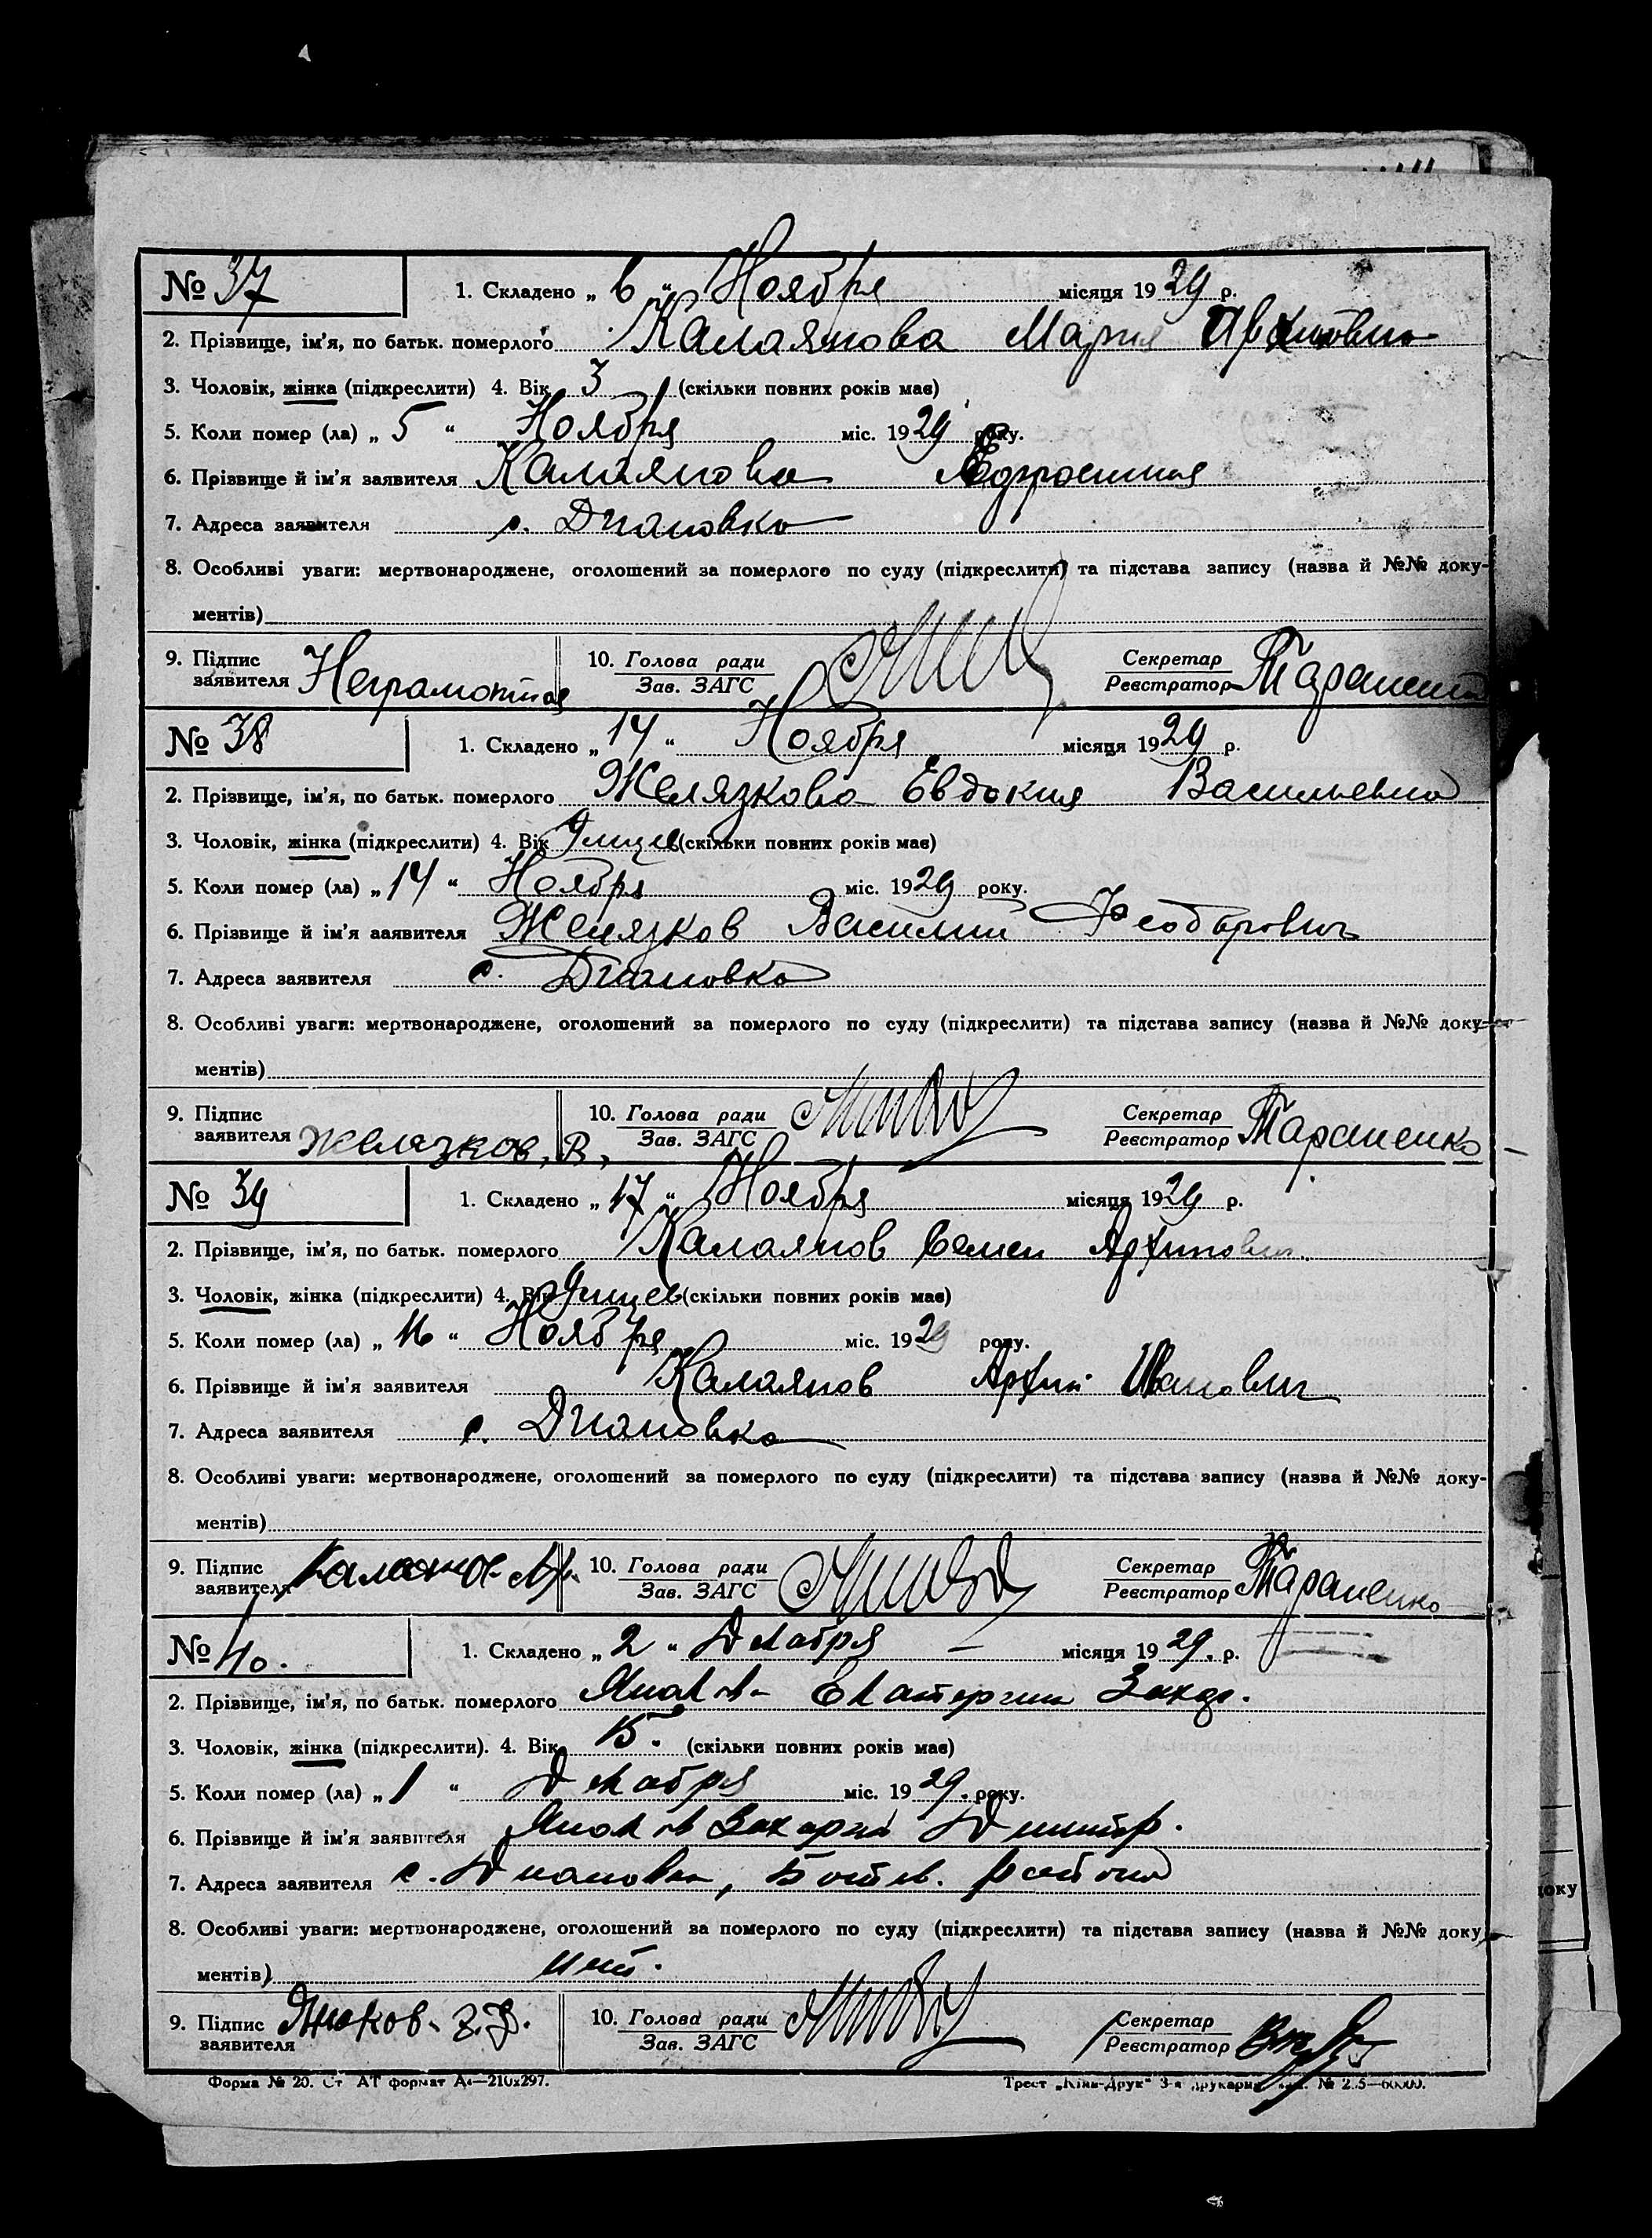 № 37 1. Складено „ 6 “ Ноября місяця 19 29 р.
2. Прізвище, ім'я, по батьк. померлого Калаянова Мария
3. Чоловік, жінка (підкреслити) 4. Вік 3 (скільки повних років має)
5. Коли помер (ла) „ 5 “ Ноября міс. 19 29 року.
6. Прізвище й ім'я заявителя Калаянова
7. Адреса заявителя с. Диановка
8. Особливі уваги: мертвонароджене, оголошений за померлого по суду (підкреслити) та підстава запису (назва й №№ доку-
ментів)
9. Підпис заявителя Неграмотная 10. Голова ради Зав. ЗАГС Секретар Реєстратор Тараненко
№ 38 1. Складено „ 14 “ Ноября місяця 19 29 р.
2. Прізвище, ім'я, по батьк. померлого Желязкова Евдокия Васильевна
3. Чоловік, жінка (підкреслити) 4. Вік (скільки повних років має)
5. Коли помер (ла) „ 14 “ Ноября міс. 19 29 року.
6. Прізвище й ім'я ааявителя Желязков Василий Феодорович
7. Адреса заявителя с. Диановка
8. Особливі уваги: мертвонароджене, оголошений за померлого по суду (підкреслити) та підстава запису (назва й №№ доку-
ментів)
9. Підпис заявителя Желязков, В, 10. Голова ради Зав. ЗАГС Секретар Реєстратор Тараненко
№ 39 1. Складено „ 17 “ Ноября місяця 19 29 р.
2. Прізвище, ім'я, по батьк. померлого Калаянов Семен Архипович
3. Чоловік, жінка (підкреслити) 4. Вік (скільки повних років має)
5. Коли помер (ла) „ 16 “ Ноября міс. 19 29 року.
6. Прізвище й ім'я заявителя Калаянов Архип Иванович
7. Адреса заявителя с. Диановка
8. Особливі уваги: мертвонароджене, оголошений за померлого по суду (підкреслити) та підстава запису (назва й №№ доку-
ментів)
9. Підпис заявителя Калаянов 10. Голова ради Зав. ЗАГС Секретар Реєстратор Тараненко
№ 40. 1. Складено „ 2 “ Декабря — місяця 19 29. р.
2. Прізвище, ім'я, по батьк. померлого Екатерина Захар.
3. Чоловік, жінка (підкреслити). 4. Вік 15. (скільки повних років має)
5. Коли помер (ла) „ 1 “ Декабря міс. 19 29. року.
6. Прізвище й ім'я заявителя Захарий Дмитр.
7. Адреса заявителя с. Диановка, Ботев. района
8. Особливі уваги: мертвонароджене, оголошений за померлого по суду (підкреслити) та підстава запису (назва й №№ доку
ментів) нет.
9. Підпис заявителя З. Д. 10. Голова ради Зав. ЗАГС Секретар Реєстратор
Форма № 20. Ст АТ формат А4—210x297. Трест „Київ-Друк“ 3-я друкарня
доку